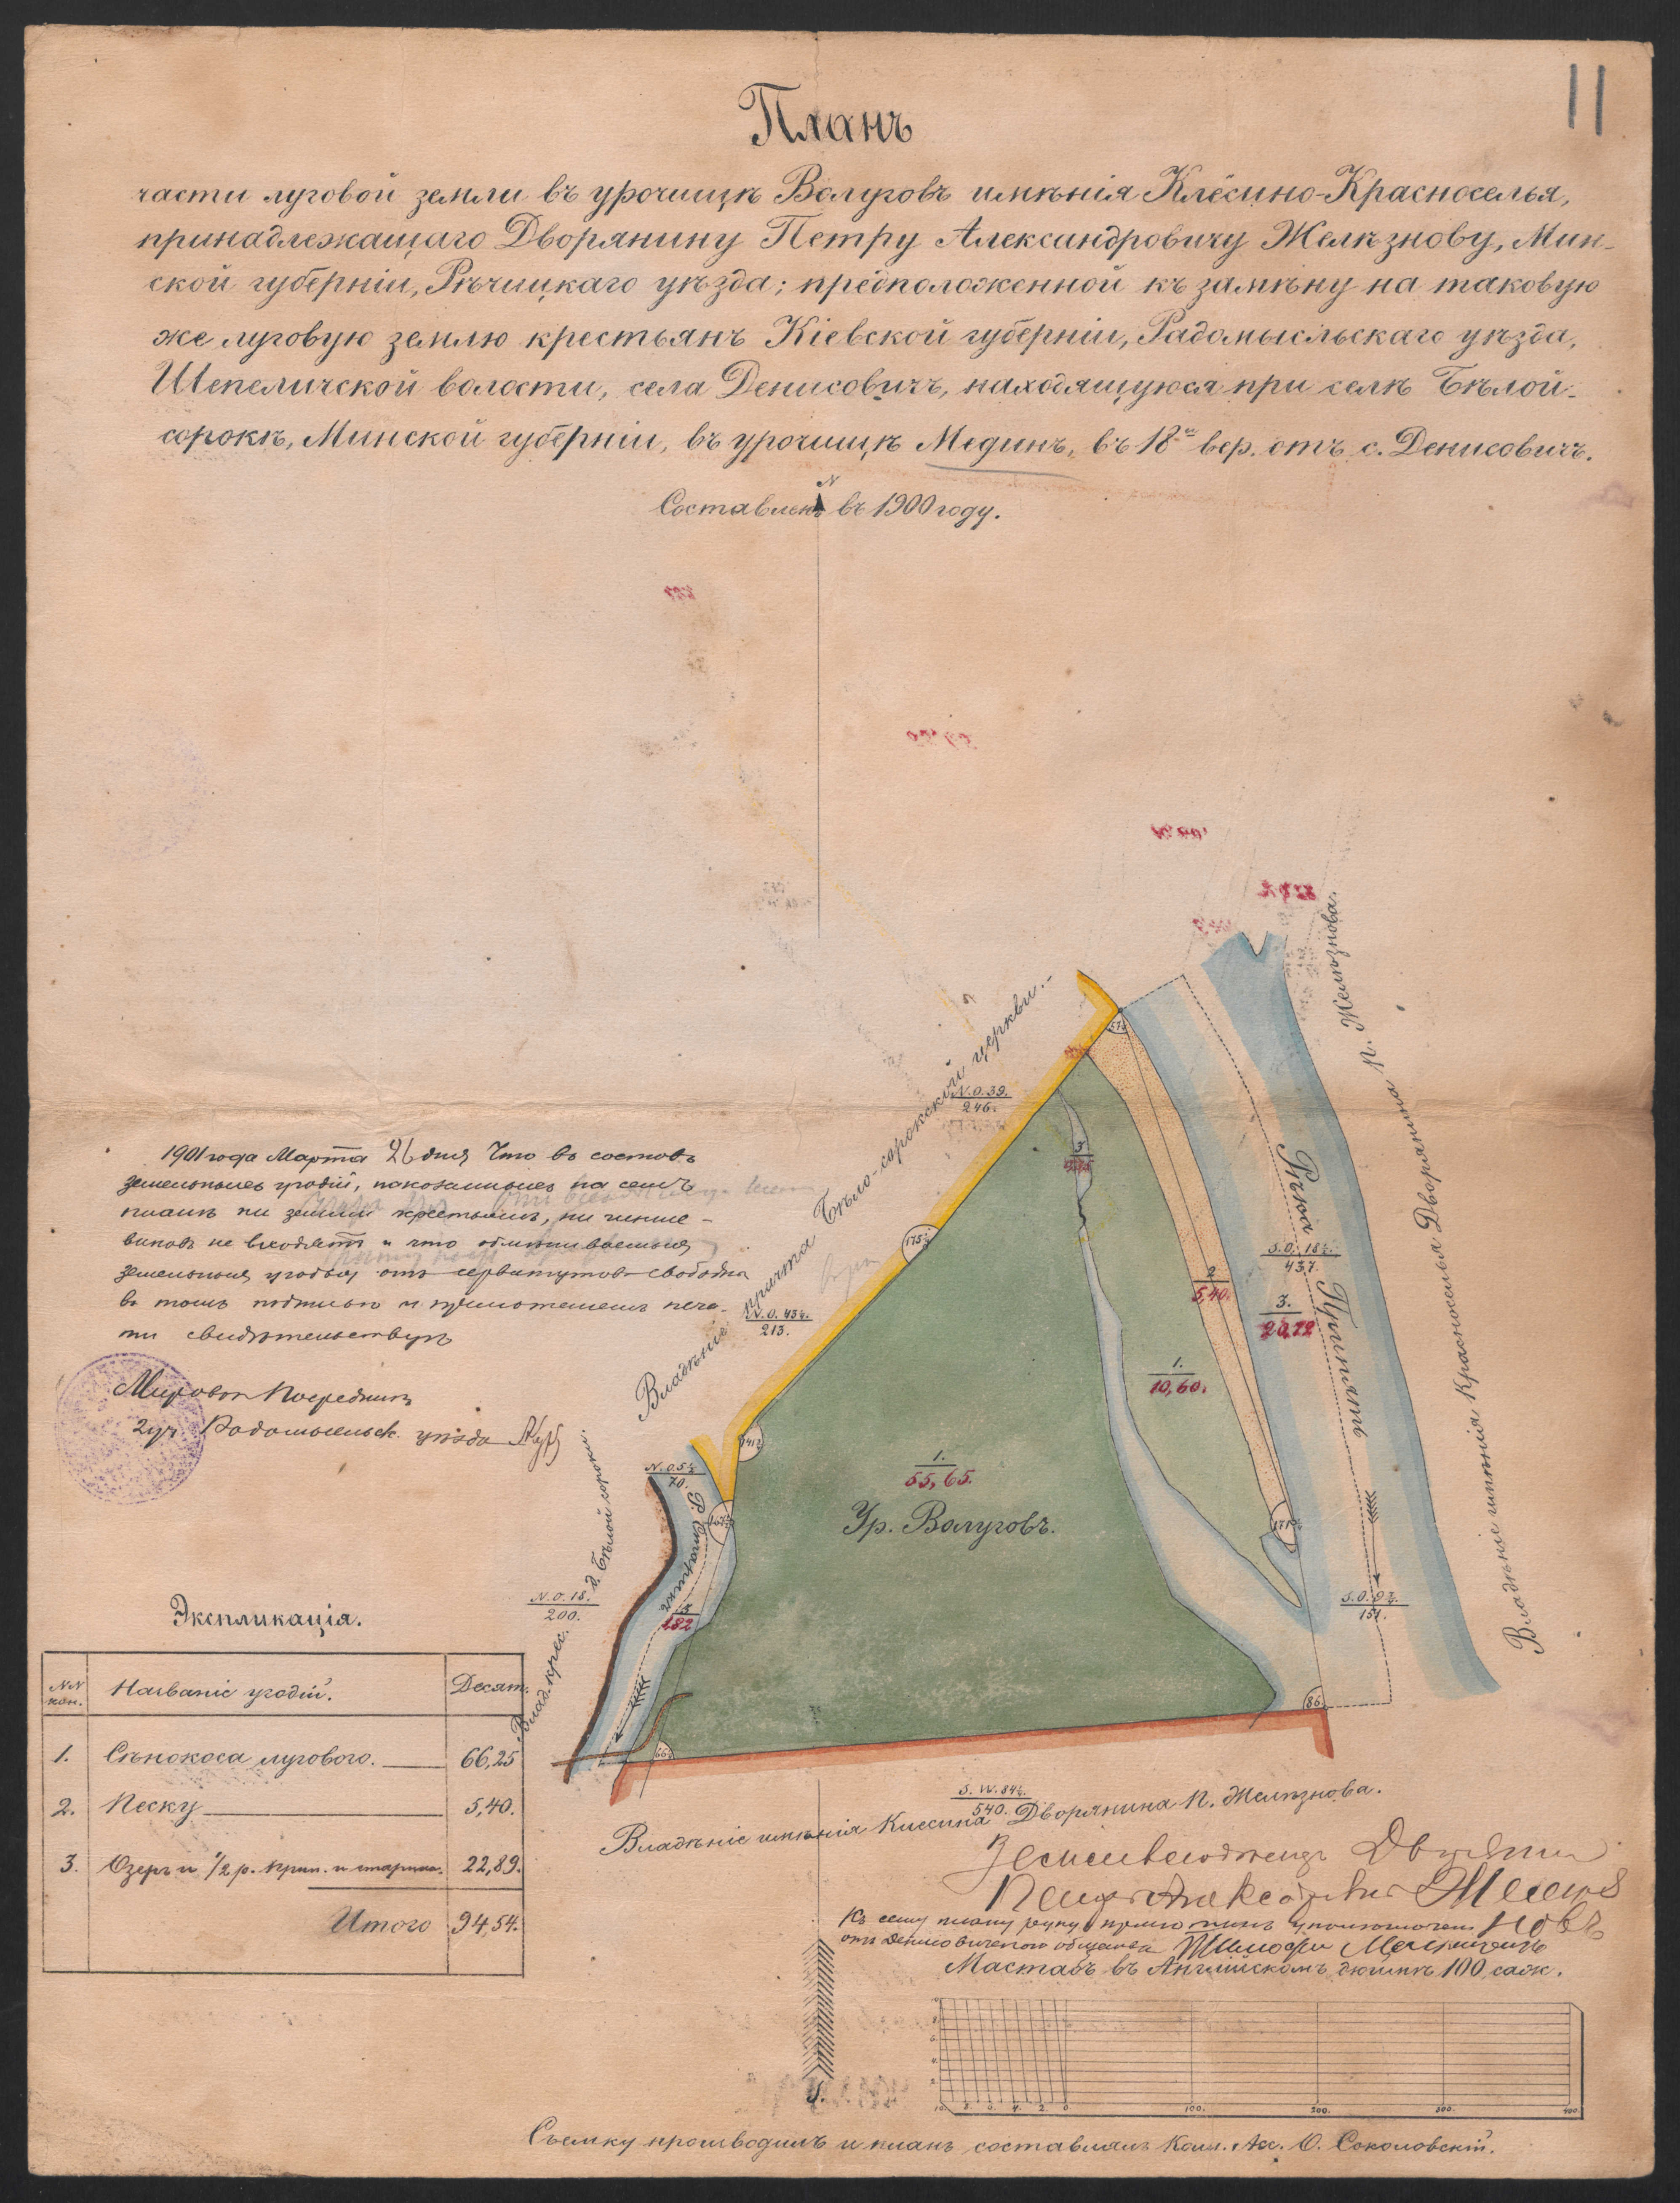 11
Планъ
части луговой земли въ урочищѣ Волуговъ имѣнія Клёсино-Красноселья,
принадлежащаго Дворянину Петру Александровичу Желѣзнову, Мин-
ской губерніи, Рѣчицкаго уѣзда; предположенной къ замѣну на таковую
же луговую землю крестьянъ Кіевской губерніи, Радомысльскаго уѣзда,
Шепеличской волости, села Денисовичъ, находящуюся при селѣ Бѣлой-
сорокѣ, Минской губерніи, въ урочищѣ Мединъ, въ 18и вер. отъ с. Денисовичъ.
N
Составленъ въ 1900 году.
Владѣніе причта Бѣло-сорокской церкви.
N.O. 39.
246.
N.O. 43½.
213.
N.O. 5½
70.
N.O. 18.
200.
Влад. крес. д. Бѣлой сороки.
Р. Старикъ
3
1.82
3
2
5,40.
1.
10,60.
3.
20,72
S.O. 18½.
437.
Рѣка Припять
S.O. 9½.
151.
Владѣніе имѣнія Красноселья Дворянина П. Желѣзнова.
1.
55,65.
Ур. Волуговъ.
175½
141½
167½
171½
86.
66½
S.W. 84½.
540.
Владѣніе имѣнія Клесина Дворянина П. Желѣзнова.
1901 года Марта 26 дня Что въ составъ
земельныхъ угодій, показанныхъ на семъ
планѣ ни земли крестьянъ, ни чинше-
виковъ не входятъ и что обмѣниваемыя
земельныя угодья отъ сервитутовъ свободны
въ томъ подписью и приложеніемъ печа-
ти свидѣтельствую
Мировой Посредникъ
2 уч. Радомысльск. уѣзда
Экспликація.
NN кон. Названіе угодій. Десят.
1. Сѣнокоса лугового. 66,25
2. Песку 5,40.
3. Озеръ и 1/2 р. Прип. и старика. 22,89.
Итого 94,54.
Землевладѣлецъ Дворянинъ
Петръ Александровичъ Желѣзновъ
Къ сему плану руку приложилъ уполномочен.
отъ Денисовичскаго общества Тимофей
Мастабъ въ Англійскомъ дюймѣ 100 саж.
10. 8. 6. 4. 2. 0 100. 200. 300. 400.
S.
Съемку производилъ и планъ составлялъ Колл. Ас. О. Соколовскій.